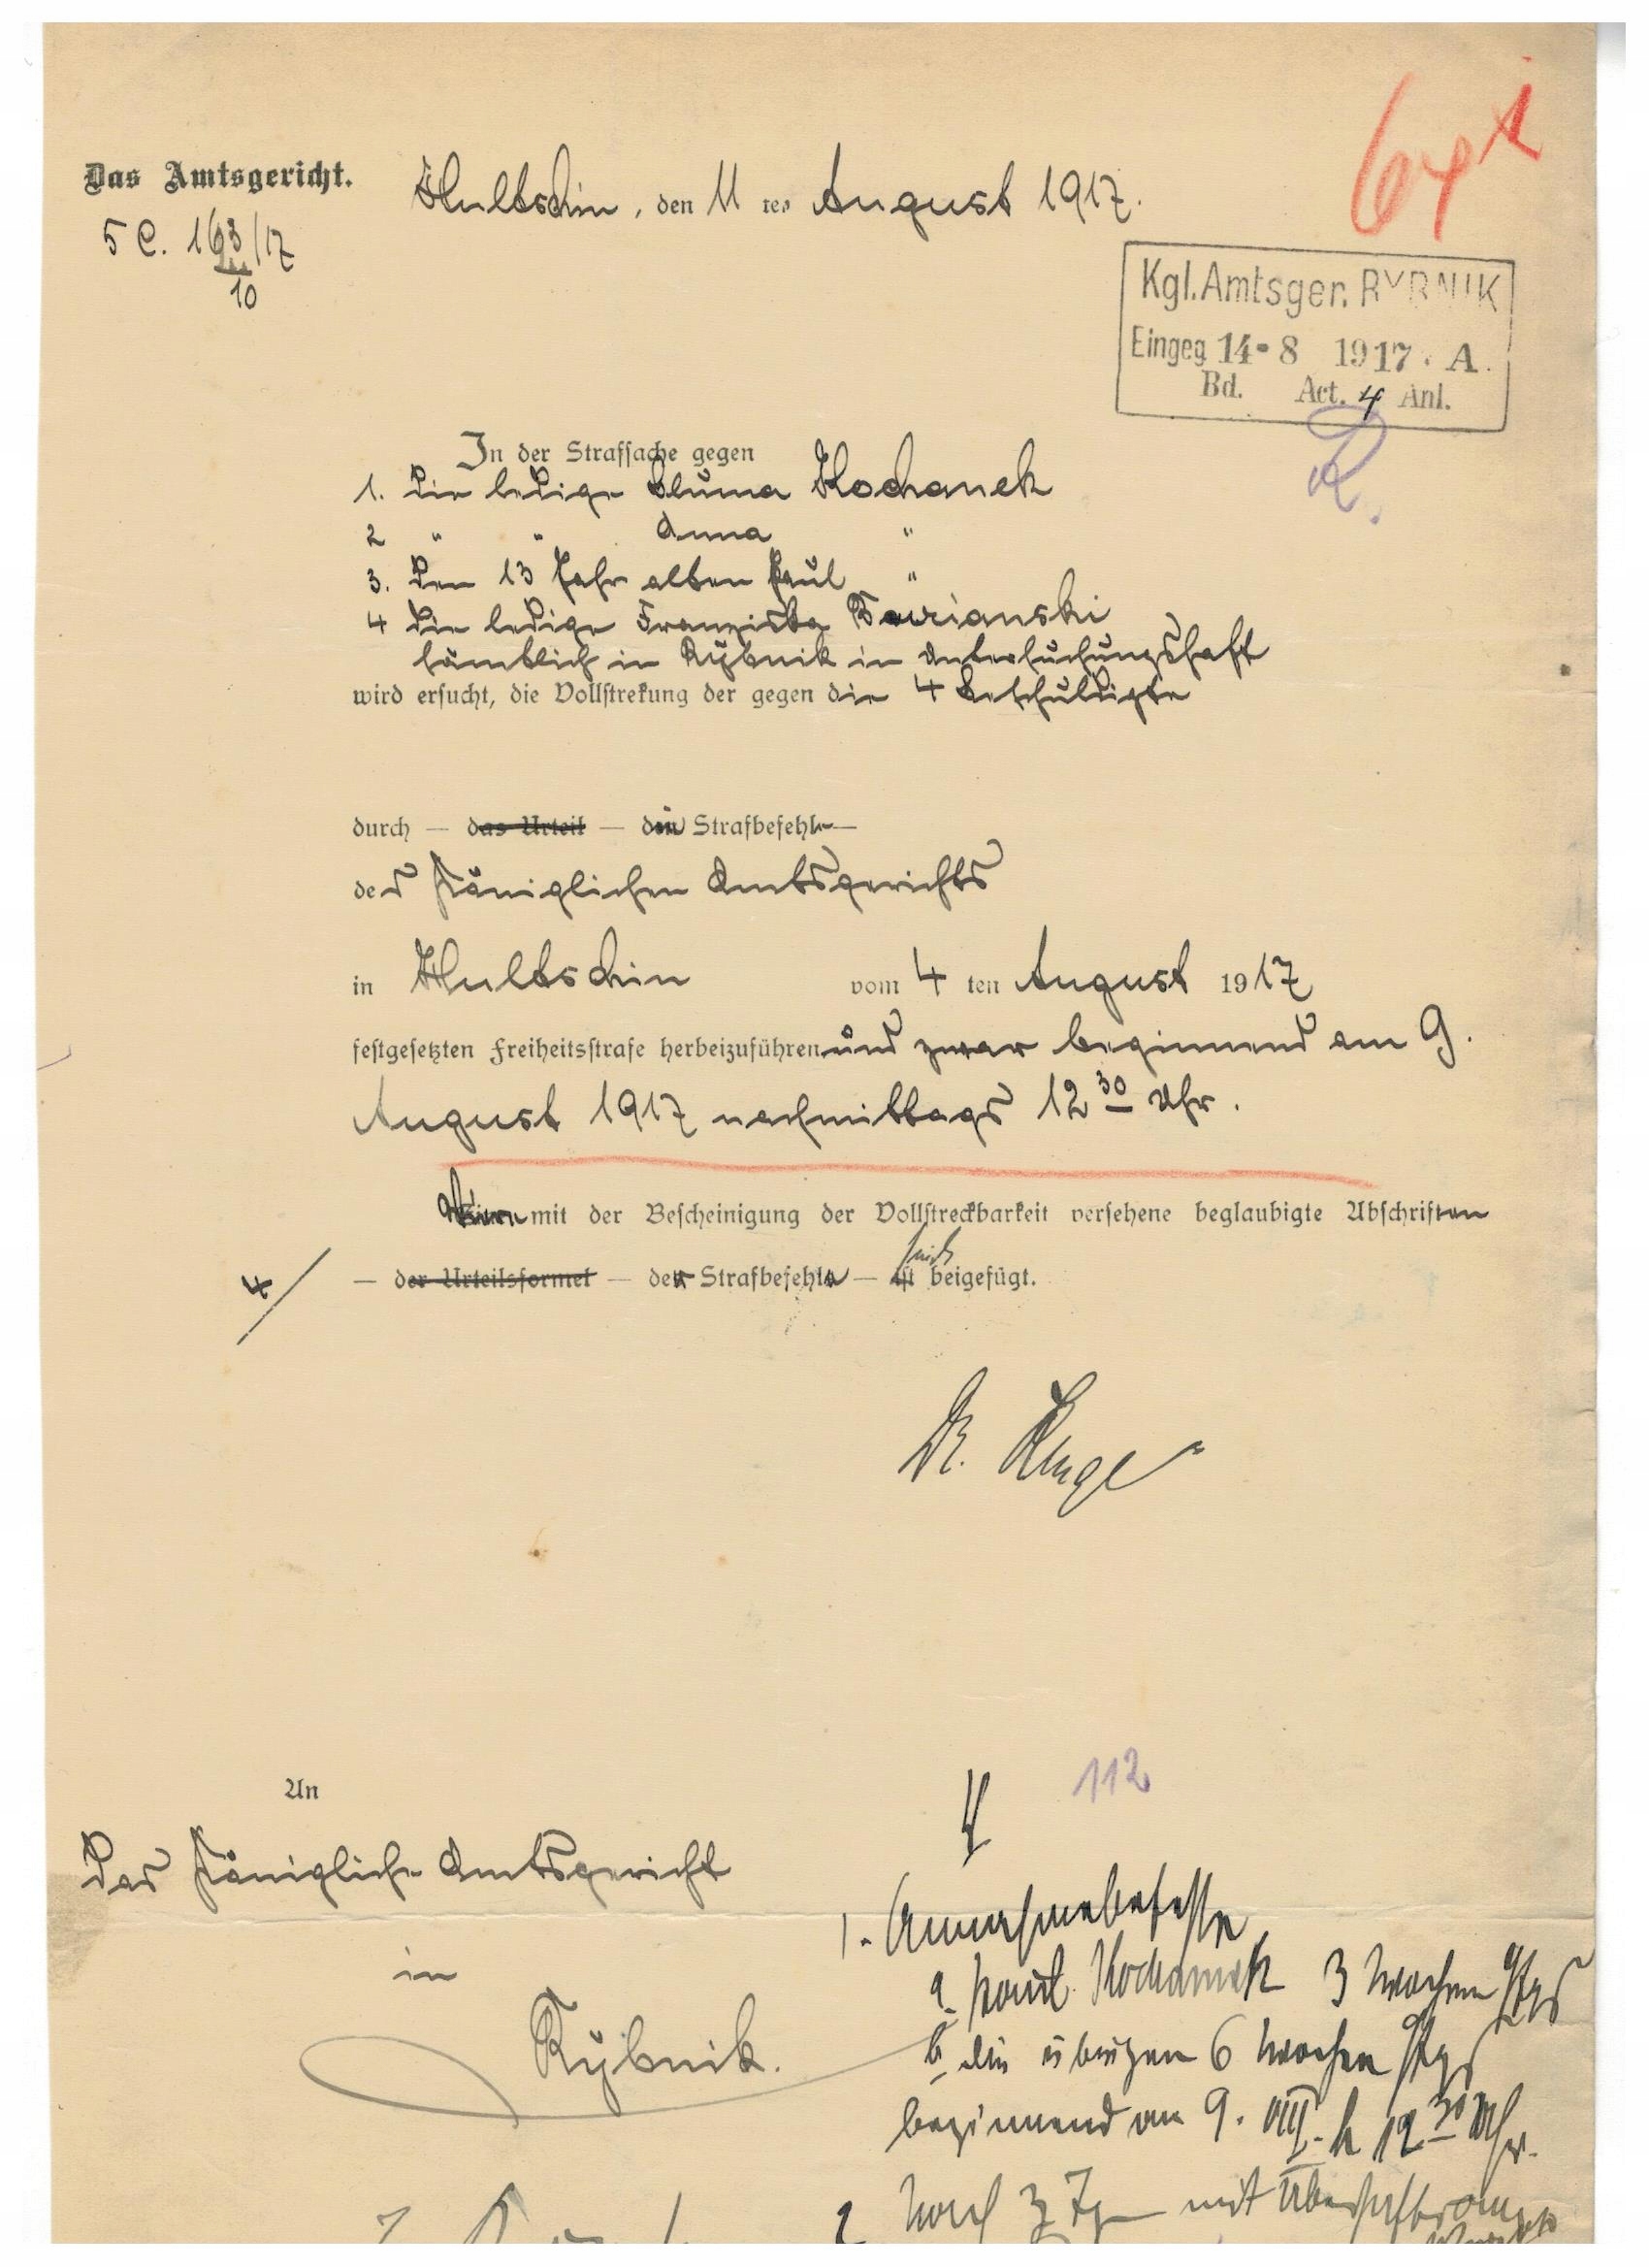 Das Amtsgericht.
Hultschin, den 11 ten August 1917.
5 C. 193/17
10
Kgl. Amtsger. RYBNIK
Eingeg 14-8 1917. A.
Bd. Act. 4 Anl.
In der Strafsache gegen
1. die ledige Kochanek
2 " " Anna "
3. den 13 Jahr alten Paul "
4 die ledige Franziska
sämtlich in Rybnik in Untersuchungshaft
wird ersucht, die Vollstrekung der gegen die 4 Beschuldigte
durch — das Urteil — die Strafbefehle —
des Königlichen Amtsgerichts
in Hultschin vom 4 ten August 1917
festgesetzten Freiheitsstrafe herbeizuführen und zwar beginnend am 9.
August 1917 nachmittags 12 30 Uhr.
mit der Bescheinigung der Vollstreckbarkeit versehene beglaubigte Abschriften
4/ — der Urteilsformel — der Strafbefehle — sind beigefügt.
Dr.
An
112
Das Königliche Amtsgericht
in
Rybnik.
1. Annahmebefehle
a. Paul Kochanek 3 Wochen Fgs
b. die übrigen 6 Wochen Fgs
beginnend am 9. VIII. 12 30 Uhr.
2 Nach 3 mit